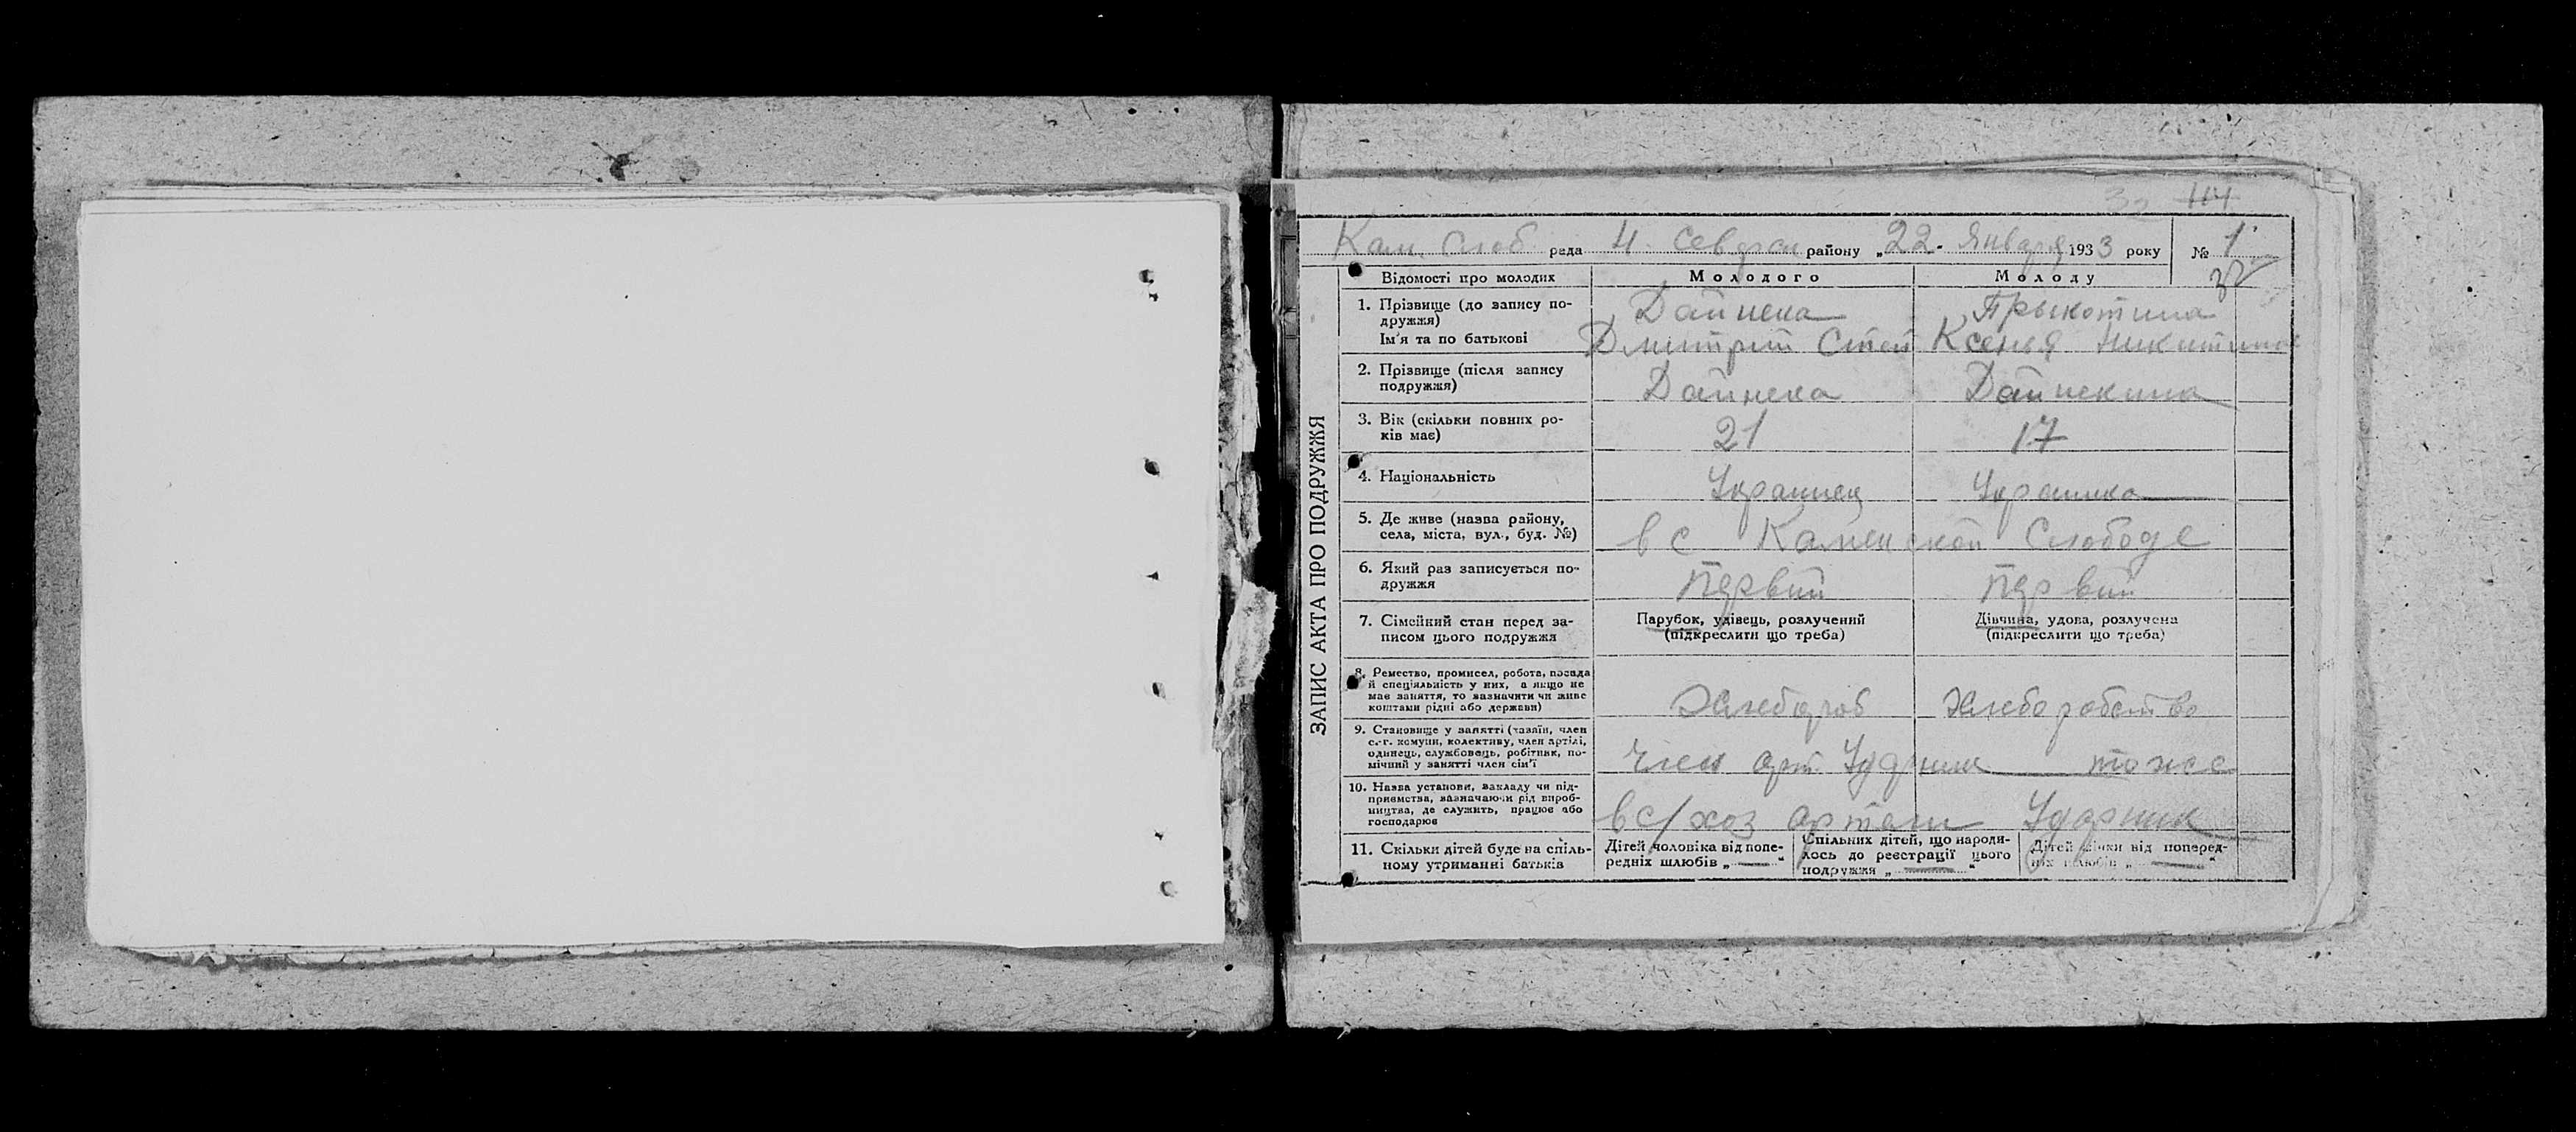 32 114
Кам. Слоб рада Н Севдрск району „22" Января 1933 року № 1
32
ЗАПИС АКТА ПРО ПОДРУЖЖЯ
Відомості про молодих Молодого Молоду
1. Прізвище (до запису по- Дайнека Прыкотина
дружжя)
Ім'я та по батькові Дмитрий Степ Ксенья Никитина
2. Прізвище (після запису Дайнека Дайнекина
подружжя)
3. Вік (скільки повних ро- 21 17
ків має)
4. Національність Украинец Украинка
5. Де живе (назва району, в с Каменской Слободе
села, міста, вул., буд. №)
6. Який раз записується по- Первий Первий
дружжя
7. Сімейний стан перед за- Парубок, удівець, розлучений Дівчина, удова, розлучена
писом цього подружжя (підкреслити що треба) (підкреслити що треба)
8. Ремество, промисел, робота, посада
й спеціяльність у них, а якщо не
має заняття, то зазначити чи живе Хлебороб Хлеборобство
коштами рідні або держави)
9. Становище у занятті (хазяїн, член
с.-г. комуни, колективу, член артілі,
одинець, службовець, робітник, по- член арт. Ударник тоже
мічний у занятті член сім'ї
10. Назва установи, закладу чи під-
приємства, зазначаючи рід вироб-
ництва, де служить, працює або в с/хоз артели Ударник
господарює
11. Скільки дітей буде на спіль- Дітей чоловіка від попе- Спільних дітей, що народи- Дітей жінки від поперед-
ному утриманні батьків редніх шлюбів „—" лось до реєстрації цього ніх шлюбів „—"
подружжя „—"